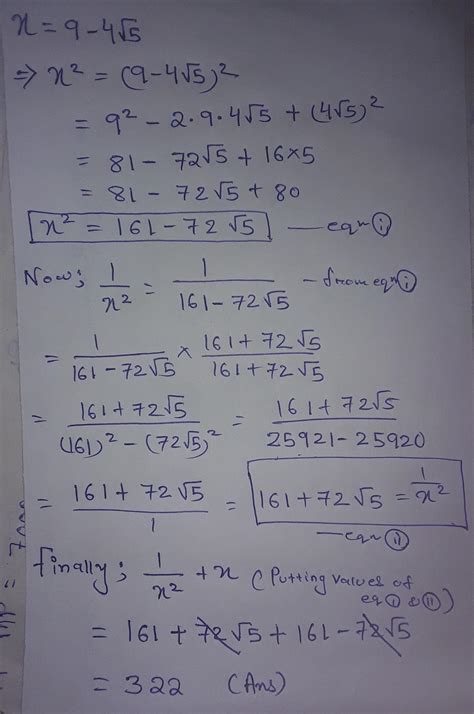 x = 9 - 4√5
⇒ x² = (9 - 4√5)²
= 9² - 2·9·4√5 + (4√5)²
= 81 - 72√5 + 16×5
= 81 - 72√5 + 80
x² = 161 - 72√5 — eqn (i)
Now; 1/x² = 1/(161 - 72√5) - from eqn (i)
= 1/(161 - 72√5) × (161 + 72√5)/(161 + 72√5)
= (161 + 72√5)/((161)² - (72√5)²) = (161 + 72√5)/(25921 - 25920)
= (161 + 72√5)/1 = 161 + 72√5 = 1/x²
— eqn (ii)
Finally; 1/x² + x (Putting values of
eq (i) & (ii))
= 161 + 72√5 + 161 - 72√5
= 322 (Ans)